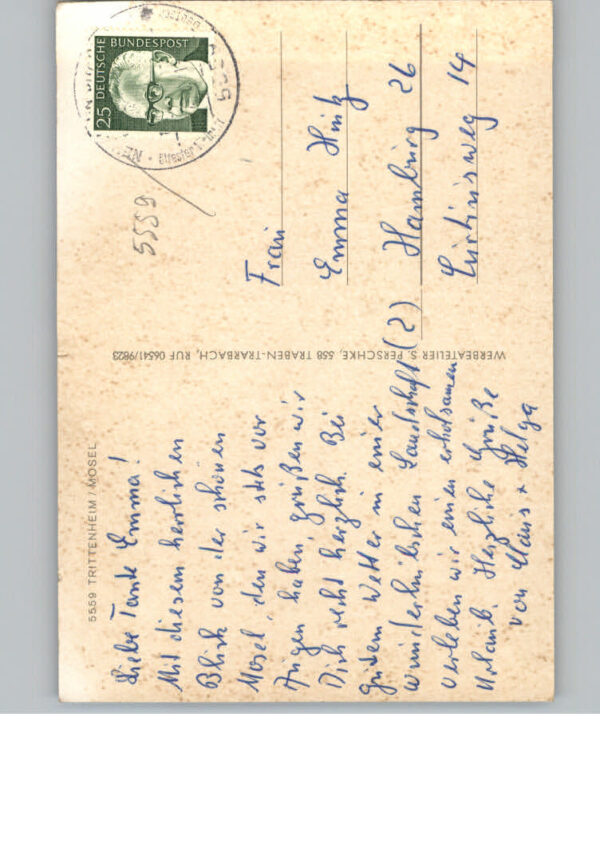 5559 TRITTENHEIM / MOSEL
Liebe Tante Emma!
Mit diesem herrlichen
Blick von der schönen
Mosel, den wir stets vor
Augen haben, grüßen wir
Dich recht herzlich. Bei
gutem Wetter in einer
wunderhübschen Landschaft (2)
verleben wir einen erholsamen
Urlaub. Herzliche Grüße
von Hans + Helga
WERBEATELIER S. PERSCHKE, 558 TRABEN-TRARBACH, RUF 06541/9823
25 DEUTSCHE
BUNDESPOST
5559
Frau
Emma Hintz
Hamburg 26
weg 14